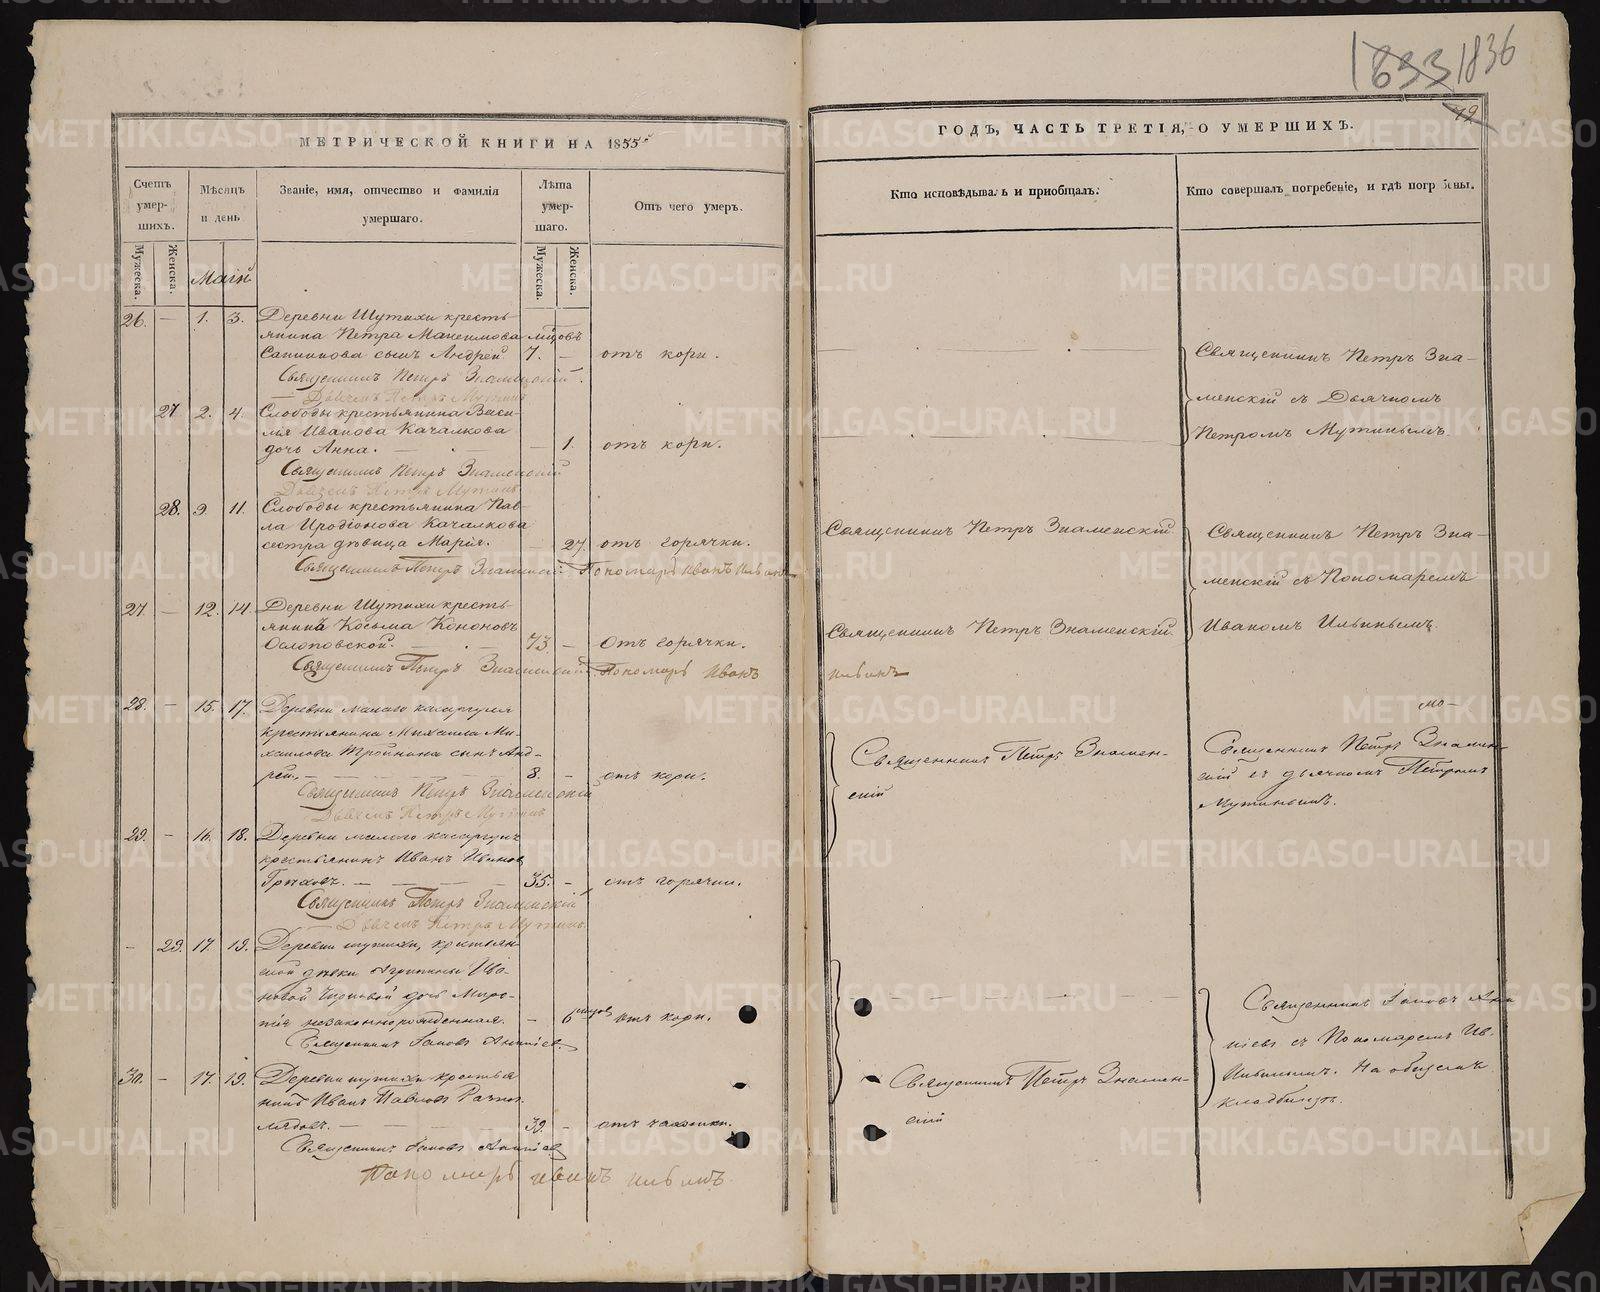 1833 1836
42
МЕТРИЧЕСКОЙ КНИГИ НА 1855й
ГОДЪ, ЧАСТЬ ТРЕТІЯ, О УМЕРШИХЪ.
Счетъ умер-шихъ.
Мужеска.
Женска.
Мѣсяцъ и день
Званіе, имя, отчество и фамилія умершаго.
Лѣта умер-шаго.
Мужеска.
Женска.
Отъ чего умеръ.
Кто исповѣдывалъ и приобщалъ.
Кто совершалъ погребеніе, и гдѣ погребены.
Маій
26. — 1. 3. Деревни Шутихи кресть-
янина Петра Максимова мѣсцовъ
сынъ Андрей 7. — отъ кори.
Священникъ Петръ Знаменскій.
Дьячекъ Петръ Мутинъ
Священникъ Петръ Зна-
менскій съ Дьячкомъ
Петромъ Мутинымъ.
27 2. 4. Слободы крестьянина Васи-
лія Иванова Качалкова
дочь Анна. — 1. отъ кори.
Священникъ Петръ Знаменскій
Дьячекъ Петръ Мутинъ
28. 9. 11. Слободы крестьянина Пав-
ла Иродіонова Качалкова
сестра дѣвица Марія. — 27. отъ горячки.
Священникъ Петръ Знаменскій Пономарь Иванъ Ильинъ
Священникъ Петръ Знаменскій
Священникъ Петръ Зна-
менскій съ Пономаремъ
Иваномъ Ильинымъ.
27 — 12. 14. Деревни Шутихи кресть-
янинъ Косьма Кононовъ
73. — Отъ горячки.
Священникъ Петръ Знаменскій Пономарь Иванъ
Ильинъ
Священникъ Петръ Знаменскій.
28. — 15. 17. Деревни малаго касаргуля
крестьянина Михаила Ми-
хаилова сынъ Анд-
рей. — 8. — отъ кори.
Священникъ Петръ Знаменскій
Дьячекъ Петръ Мутинъ
Священникъ Петръ Знамен-
скій
Священникъ Петръ Знамен-
скій съ дьячкомъ Петромъ
Мутинымъ.
29. — 16. 18. Деревни малаго
крестьянинъ Иванъ Ивановъ
Грѣховъ. — 35. — отъ горячки.
Священникъ Петръ Знаменскій
Дьячекъ Петръ Мутинъ
— 29. 17. 19. Деревни шутихи, крестьян-
ской дѣвки Агрипины Ива-
новой дочь
незаконнорожденная. — 6 мѣсцовъ отъ кори.
Священникъ Іаковъ Ананіевъ.
Священникъ Іаковъ Ана
ніевъ съ Пономаремъ Ив.
Ильинымъ. На общемъ
кладбищѣ.
30. — 17. 19. Деревни шутихи крестья
нинъ Иванъ Павловъ
39. — отъ чахотки.
Священникъ Іаковъ Ананіевъ
Пономарь иванъ ильинъ
Священникъ Петръ Знамен-
скій
METRIKI.GASO-URAL.RU